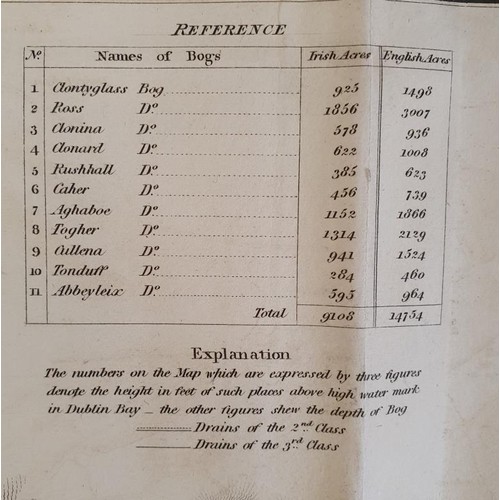 REFERENCE
No. Names of Bogs Irish Acres English Acres
1 Clontyglass Bog 925 1498
2 Ross Do. 1856 3007
3 Clonina Do. 578 936
4 Clonard Do. 622 1008
5 Rushhall Do. 385 623
6 Caher Do. 456 739
7 Aghaboe Do. 1152 1866
8 Togher Do. 1314 2129
9 Cullena Do. 941 1524
10 Tonduff Do. 284 460
11 Abbeyleix Do. 595 964
Total 9108 14754
Explanation
The numbers on the Map which are expressed by three figures
denote the height in feet of such places above high water mark
in Dublin Bay _ the other figures shew the depth of Bog
Drains of the 2nd. Class
Drains of the 3rd. Class